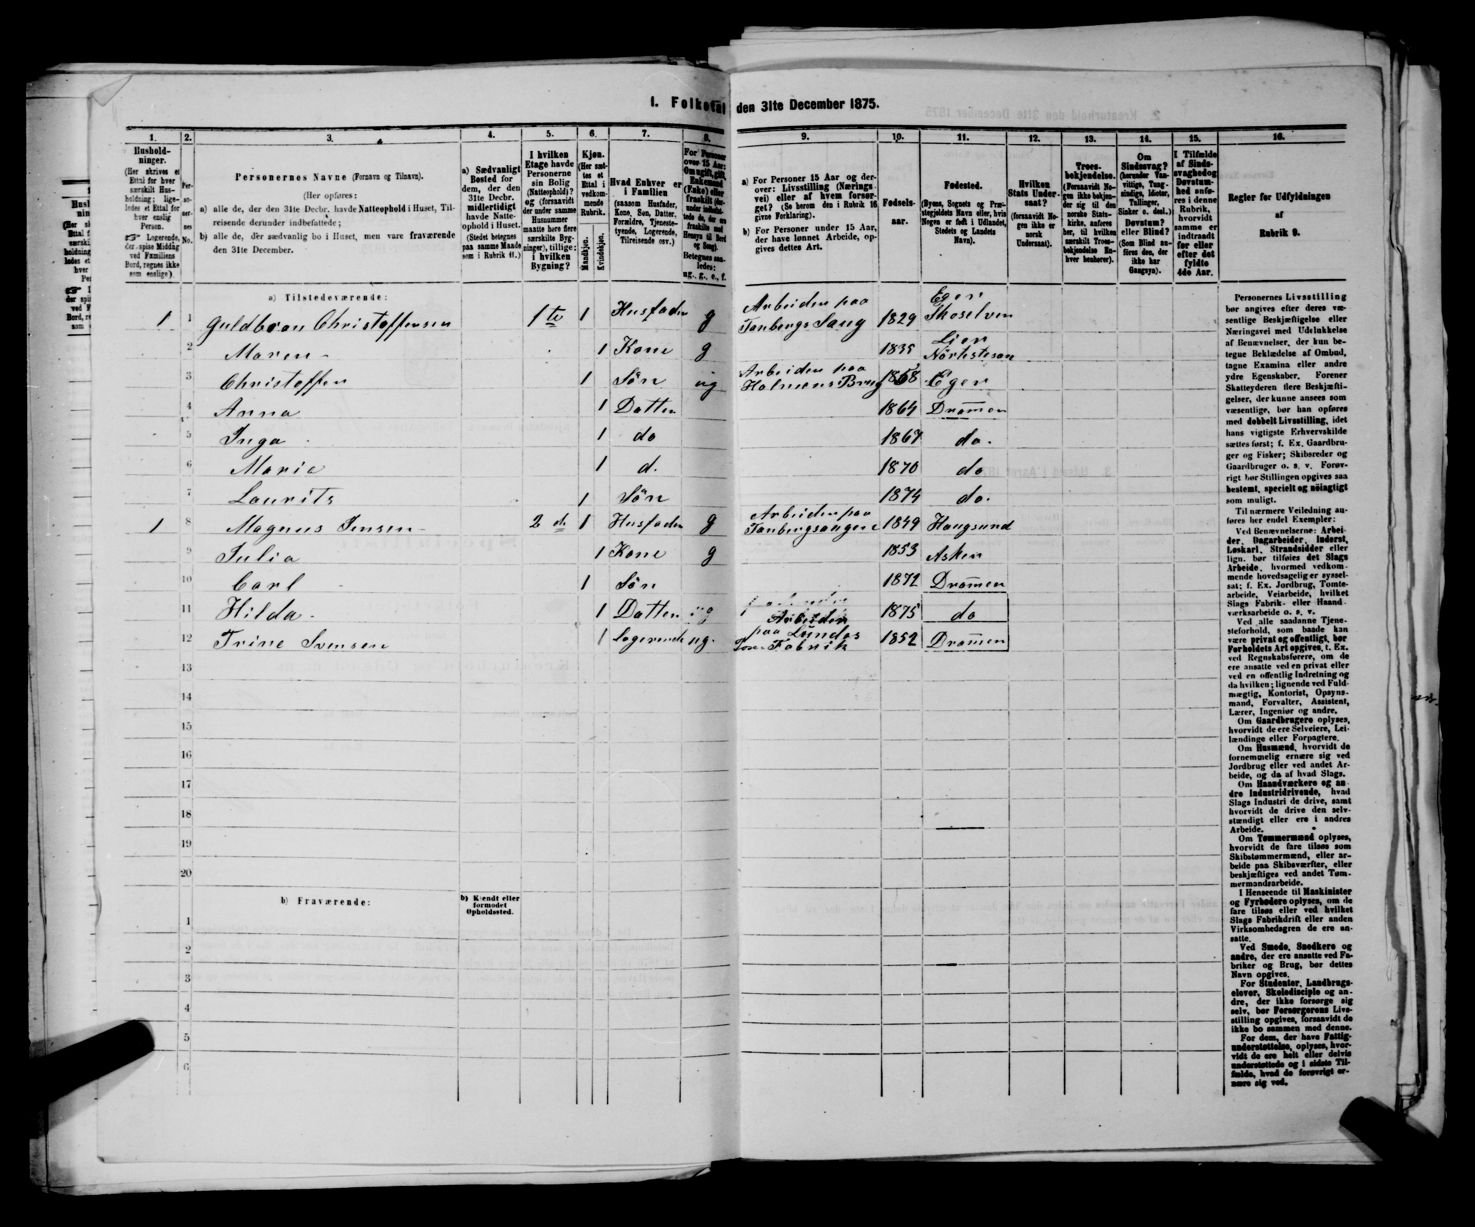 1. Folketal den 31te December 1875.
1.
2.
3.
4.
5.
6.
7.
8.
9.
10.
11.
12.
13.
14.
15.
16.
Hushold-
ninger.
(Her skrives et
Ettal for hver
særskilt Hus-
holdning; lige-
ledes et Ettal for
hver enslig
Person.
☞ Logerende,
der spise Middag
ved Familiens
Bord, regnes ikke
som enslige).
Per-
so-
ner-
nes
No.
Personernes Navne (Fornavn og Tilnavn).
(Her opføres:
a) alle de, der den 31te Decbr. havde Natteophold i Huset, Til-
reisende derunder indbefattede;
b) alle de, der sædvanlig bo i Huset, men vare fraværende
den 31te December.
a) Sædvanligt
Bosted for
dem, der den
31te Decbr.
midlertidigt
havde Natte-
ophold i Huset.
(Stedet betegnes
paa samme Maade
som i Rubrik 11.)
I hvilken
Etage havde
Personerne
sin Bolig
(Natteophold)?
og (forsaavidt
der under samme
Husnummer
maatte høre flere
særskilte Byg-
ninger), tillige:
i hvilken
Bygning?
Kjøn.
(Her sæt-
tes et
Ettal i
vedkom-
mende
Rubrik.
Mandkjøn.
Kvindekjøn.
Hvad Enhver er
i Familien
(saasom Husfader,
Kone, Søn, Datter,
Forældre, Tjeneste-
tyende, Logerende,
Tilreisende osv.)
For Personer
over 15 Aar:
Om ugift, gift,
Enkemand
(Enke) eller
fraskilt
Betegnes saa-
ledes:
ug., g., e., f.
a) For Personer 15 Aar og der-
over: Livsstilling (Nærings-
vei) eller af hvem forsør-
get? (Se herom den i Rubrik 16
givne Forklaring).
b) For Personer under 15 Aar,
der have lønnet Arbeide, op-
gives dettes Art.
Fødsels-
aar.
Fødested.
(Byens, Sognets og Præ-
stegjeldets Navn eller, hvis
Nogen er født i Udlandet,
Stedets og Landets
Navn).
Hvilken
Stats Under-
saat?
(forsaavidt No-
gen ikke er
norsk
Undersaat).
Troes-
bekjendelse.
(Forsaavidt No-
gen ikke bekjen-
der sig til den
norske Stats-
kirke, anføres
her, til hvilken
særskilt Troes-
bekjendelse En-
hver henhører).
Om
Sindssvag?
(herunder Van-
vittige, Tung-
sindige, Idioter,
Tullinger,
Sinker o. desl.)
Døvstum?
eller Blind?
(Som Blind an-
føres den, der
ikke har
Gangsyn).
I Tilfælde
af Sinds-
svaghed og
Døvstum-
hed anfø-
res i denne
Rubrik,
hvorvidt
samme er
indtraadt
før eller
efter det
fyldte
4de Aar.
Regler for Udfyldningen
af
Rubrik 9.
a) Tilstedeværende:
1 1 Guldbran Christoffersen 1 te 1 Husfader g Arbeider paa Tanbergs Saug 1829 Eger Skoselven
2 Maren - 1 Kone g 1835 Lier
3 Christoffer 1 Søn ug Arbeider paa Holmens Brug 1858 Eger
4 Anna 1 Datter 1864 Dramen
5 Inga 1 do 1867 do.
6 Marie 1 d. 1870 do
7 Laurits 1 Søn 1874 do.
1 8 Magnus Jensen - 2 d 1 Husfader g Arbeider paa Tanbergsaugene 1849 Haugsund
9 Julia 1 Kone g 1853 Asker
10 Carl - 1 Søn 1872 Dramen
11 Hilda - 1 Datter ug 1875 do
12 Trine Svensen 1 Logerende ug. Arbeider paa Lundes Fabrik 1852 Dramen
13
14
15
16
17
18
19
20
b) Fraværende:
b) Kjendt eller
formodet
Opholdssted.
1
2
3
4
5
6
Personernes Livsstilling
bør angives efter deres væ-
sentlige Beskjæftigelse eller
Næringsvei med Udelukkelse
af Benævnelser, der kun be-
tegne Beklædelse af Ombud,
tagne Examina eller andre
ydre Egenskaber. Forener
Skatteyderen flere Beskjæfti-
gelser, der kunne ansees som
væsentlige, bør han opføres
med dobbelt Livsstilling, idet
hans vigtigste Erhvervskilde
sættes først; f. Ex. Gaardbru-
ger og Fisker; Skibsreder og
Gaardbruger o. s. v. Forøv-
rigt bør Stillingen opgives saa
bestemt, specielt og nøiagtigt
som muligt.
Til nærmere Veiledning an-
føres her endel Exempler:
Ved Benævnelserne: Arbei-
der, Dagarbeider, Inderst,
Løskarl, Strandsidder eller
lign. bør tilføies det Slags
Arbeide, hvormed vedkom-
mende hovedsagelig er syssel-
sat; f. Ex. Jordbrug, Tomte-
arbeide, Veiarbeide, hvilket
Slags Fabrik- eller Haand-
værksarbeide o. s. v.
Ved alle saadanne Tjene-
steforhold, som baade kan
være privat og offentligt, bør
Forholdets Art opgives, t. Ex.
ved Regnskabsførere, om de
ere ansatte ved en privat eller
ved en offentlig Indretning og
da hvilken; lignende ved Fuld-
mægtig, Kontorist, Opsyns-
mand, Forvalter, Assistent,
Lærer, Ingeniør og andre.
Om Gaardbrugere oplyses,
hvorvidt de ere Selveiere, Lei-
lændinge eller Forpagtere.
Om Husmænd, hvorvidt de
fornemmelig ernære sig ved
Jordbrug eller ved andet Ar-
beide, og da af hvad Slags.
Om Haandværkere og an-
dre Industridrivende, hvad
Slags Industri de drive, samt
hvorvidt de drive den selv-
stændigt eller ere i andres
Arbeide.
Om Tømmermænd oplyses,
hvorvidt de fare tilsøs som
Skibstømmermænd, eller ar-
beide paa Skibsværfter, eller
beskjæftiges ved andet Tøm-
mermandsarbeide.
I Henseende til Maskinister
og Fyrbødere oplyses, om de
fare tilsøs eller ved hvilket
Slags Fabrikdrift eller anden
Virksomhedsgren de ere an-
satte.
Ved Smede, Snedkere og
andre, der ere ansatte ved Fa-
briker og Brug, bør dettes
Navn opgives.
For Studenter, Landbrugs-
elever, Skoledisciple og an-
dre, der ikke forsørge sig
selv, bør Forsørgerens Livs-
stilling opgives, forsaavidt de
ikke bo sammen med denne.
For dem, der have Fattig-
understøttelse, oplyses, hvor-
vidt de ere helt eller delvis
understøttede og i sidste Til-
fælde, hvad de forøvrigt er-
nære sig ved.